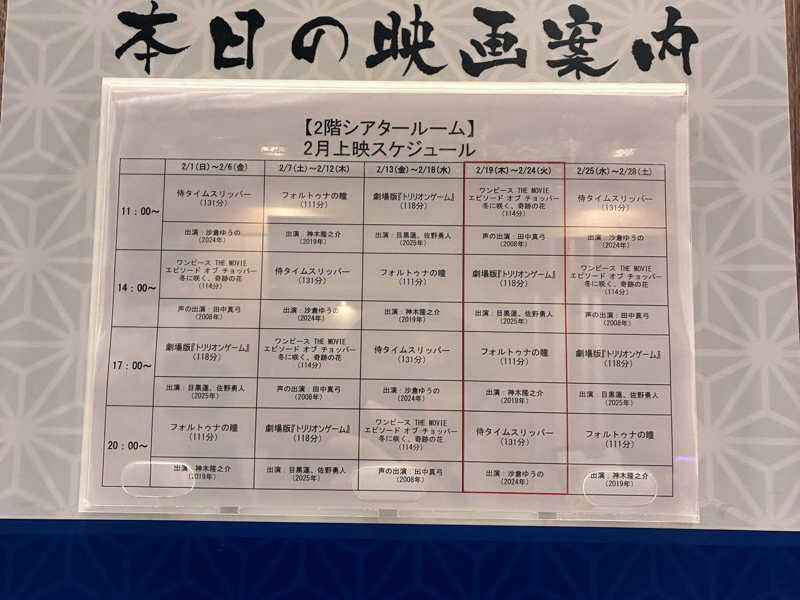 本日の映画案内
【2階シアタールーム】
2月上映スケジュール
2/1(日)～2/6(金) 2/7(土)～2/12(木) 2/13(金)～2/18(水) 2/19(木)～2/24(火) 2/25(水)～2/28(土)
11：00～
侍タイムスリッパー
(131分)
出演：沙倉ゆうの
(2024年)
フォルトゥナの瞳
(111分)
出演：神木隆之介
(2019年)
劇場版『トリリオンゲーム』
(118分)
出演：目黒蓮、佐野勇人
(2025年)
ワンピース THE MOVIE
エピソード オブ チョッパー
冬に咲く、奇跡の花
(114分)
声の出演：田中真弓
(2008年)
侍タイムスリッパー
(131分)
出演：沙倉ゆうの
(2024年)
14：00～
ワンピース THE MOVIE
エピソード オブ チョッパー
冬に咲く、奇跡の花
(114分)
声の出演：田中真弓
(2008年)
侍タイムスリッパー
(131分)
出演：沙倉ゆうの
(2024年)
フォルトゥナの瞳
(111分)
出演：神木隆之介
(2019年)
劇場版『トリリオンゲーム』
(118分)
出演：目黒蓮、佐野勇人
(2025年)
ワンピース THE MOVIE
エピソード オブ チョッパー
冬に咲く、奇跡の花
(114分)
声の出演：田中真弓
(2008年)
17：00～
劇場版『トリリオンゲーム』
(118分)
出演：目黒蓮、佐野勇人
(2025年)
ワンピース THE MOVIE
エピソード オブ チョッパー
冬に咲く、奇跡の花
(114分)
声の出演：田中真弓
(2008年)
侍タイムスリッパー
(131分)
出演：沙倉ゆうの
(2024年)
フォルトゥナの瞳
(111分)
出演：神木隆之介
(2019年)
劇場版『トリリオンゲーム』
(118分)
出演：目黒蓮、佐野勇人
(2025年)
20：00～
フォルトゥナの瞳
(111分)
出演：神木隆之介
(2019年)
劇場版『トリリオンゲーム』
(118分)
出演：目黒蓮、佐野勇人
(2025年)
ワンピース THE MOVIE
エピソード オブ チョッパー
冬に咲く、奇跡の花
(114分)
声の出演：田中真弓
(2008年)
侍タイムスリッパー
(131分)
出演：沙倉ゆうの
(2024年)
フォルトゥナの瞳
(111分)
出演：神木隆之介
(2019年)